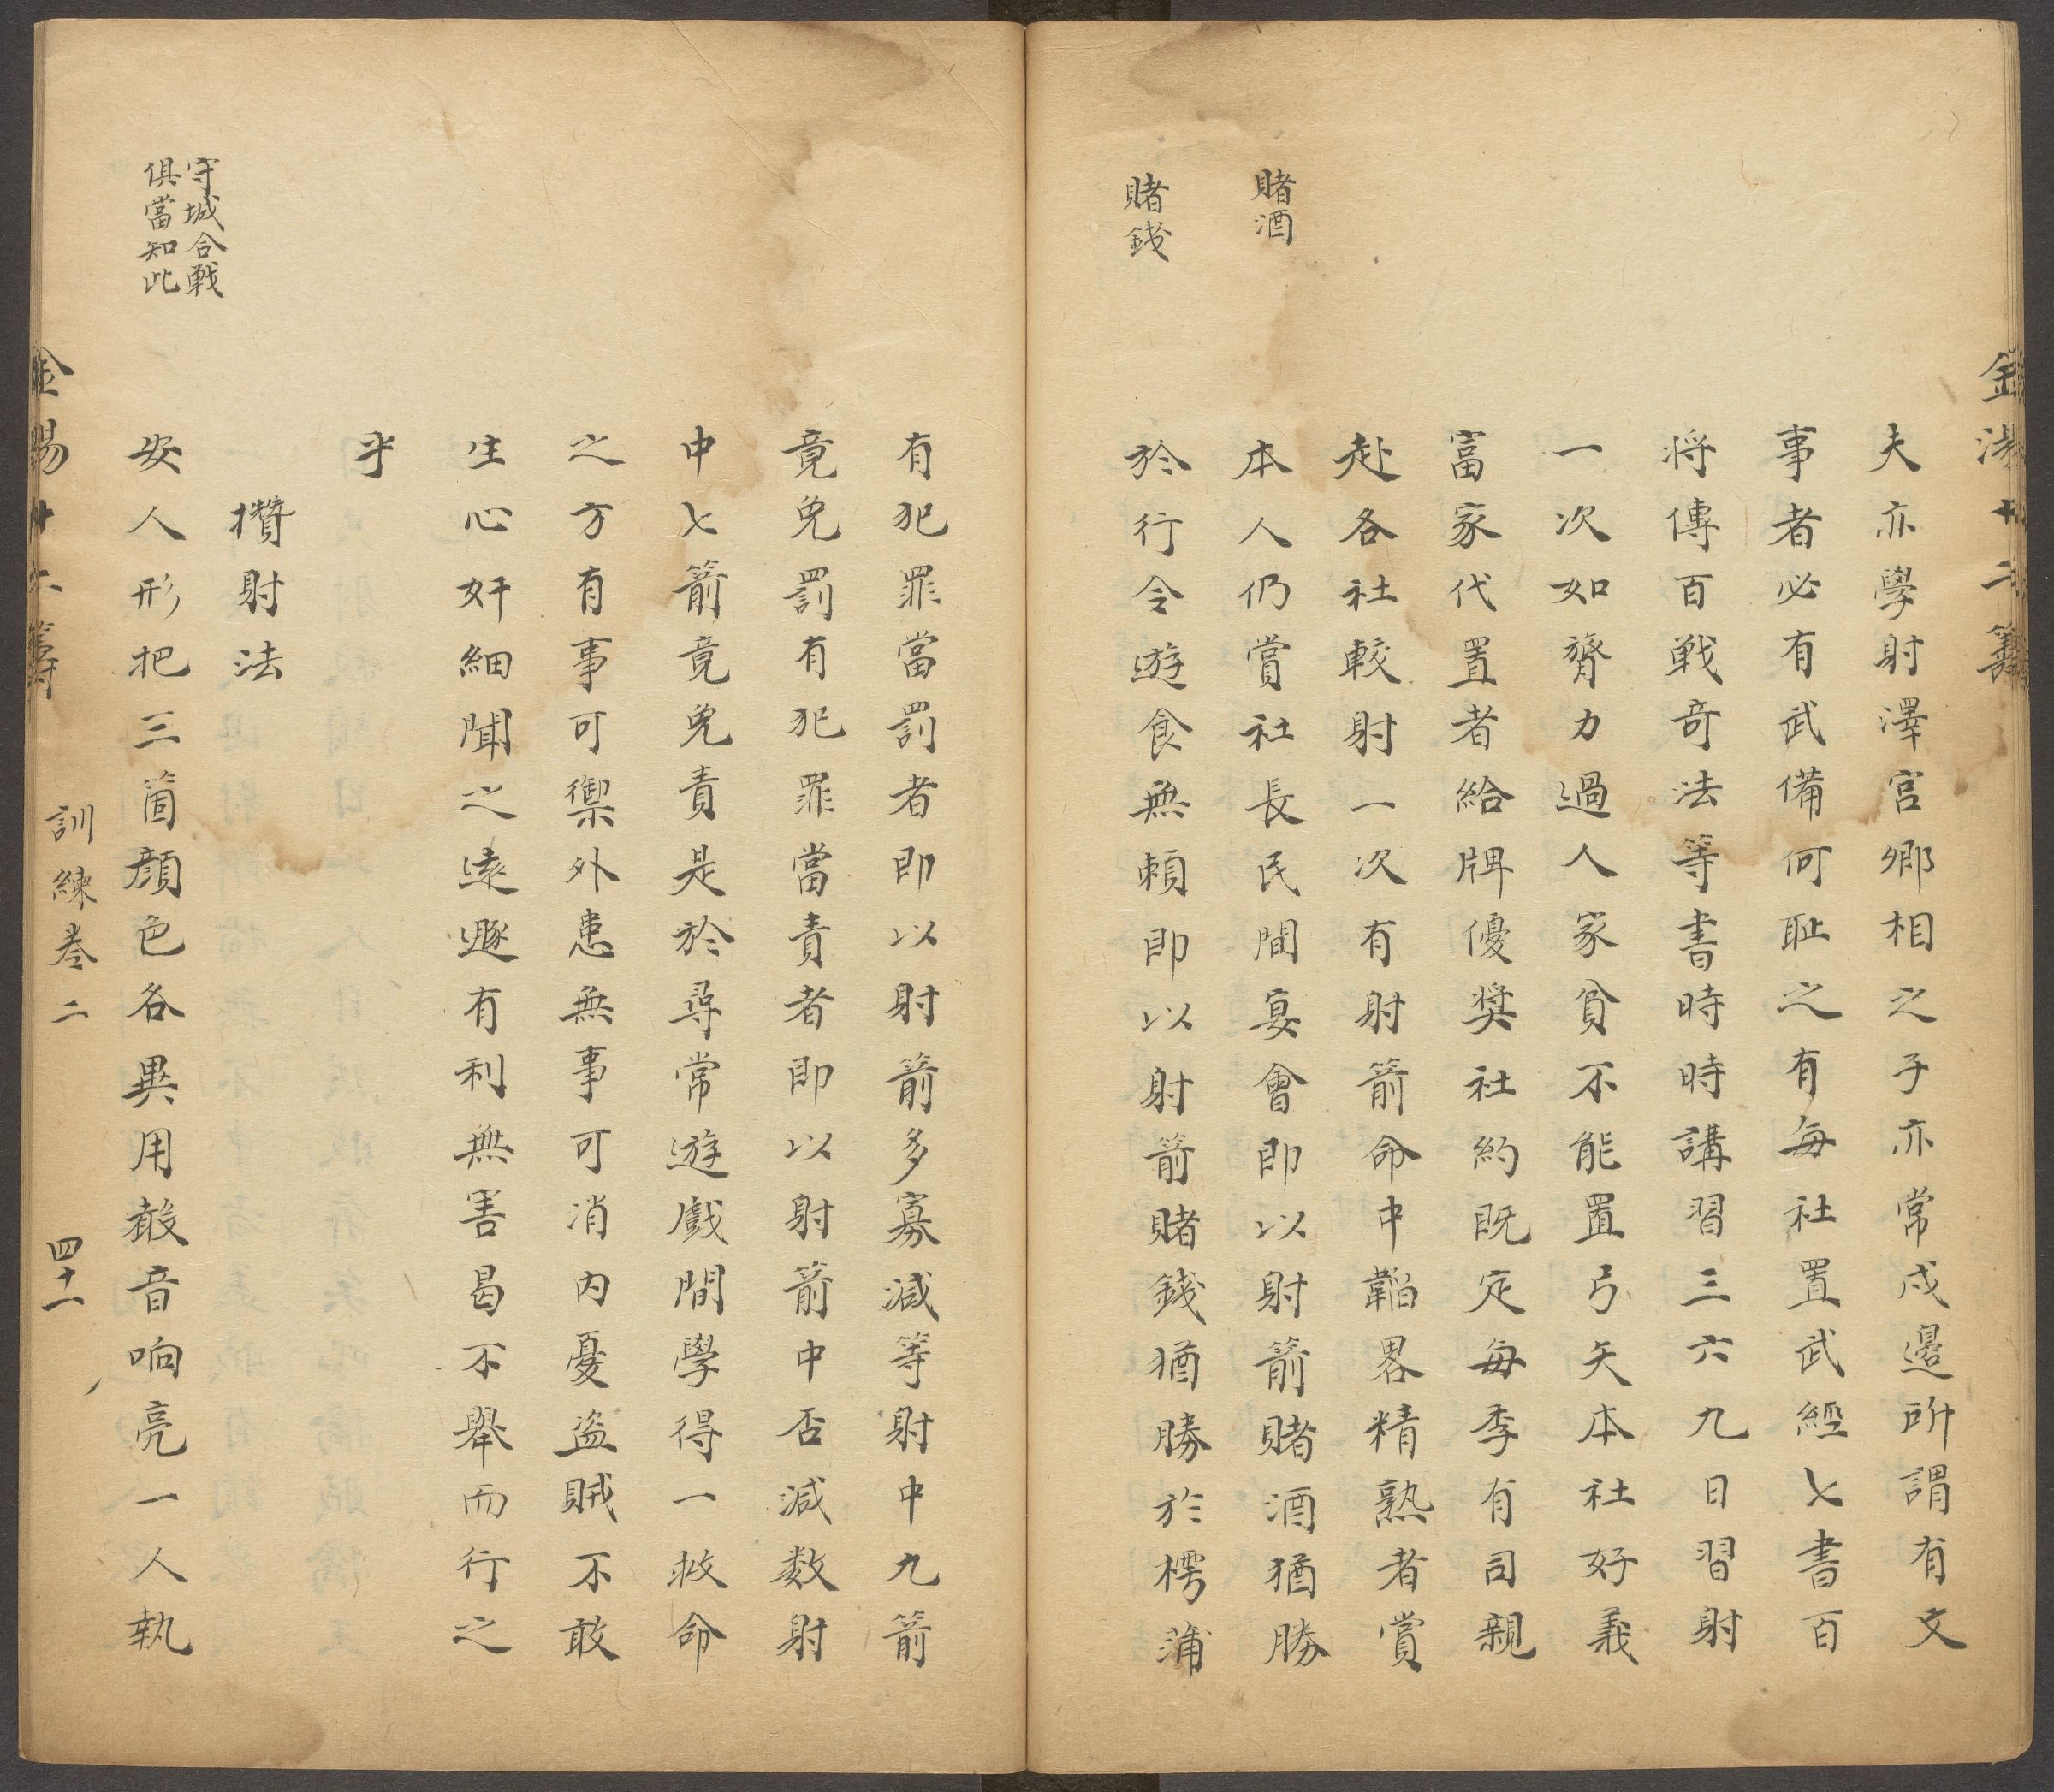 金湯十二籌
夫亦學射澤宮卿相之子亦常戍邊所謂有文
事者必有武備何耻之有每社置武經七書百
将傳百戰奇法等書時時講習三六九日習射
一次如膂力過人家貧不能置弓矢本社好義
富家代置者給牌優奬社約既定每季有司親
赴各社較射一次有射箭命中韜畧精熟者賞
賭酒
本人仍賞社長民間宴會即以射箭賭酒猶勝
賭錢
於行令遊食無頼即以射箭賭錢猶勝於樗蒲
有犯罪當罰者即以射箭多寡減等射中九箭
竟免罰有犯罪當責者即以射箭中否減数射
中七箭竟免責是於尋常遊戲間學得一救命
之方有事可禦外患無事可消内憂盗賊不敢
生心奸細聞之遠遯有利無害曷不舉而行之
乎
攢射法
守城合戰
俱當知此
安人形把三箇顔色各異用敲音响亮一人執
金湯十二籌
訓練卷二
四十一